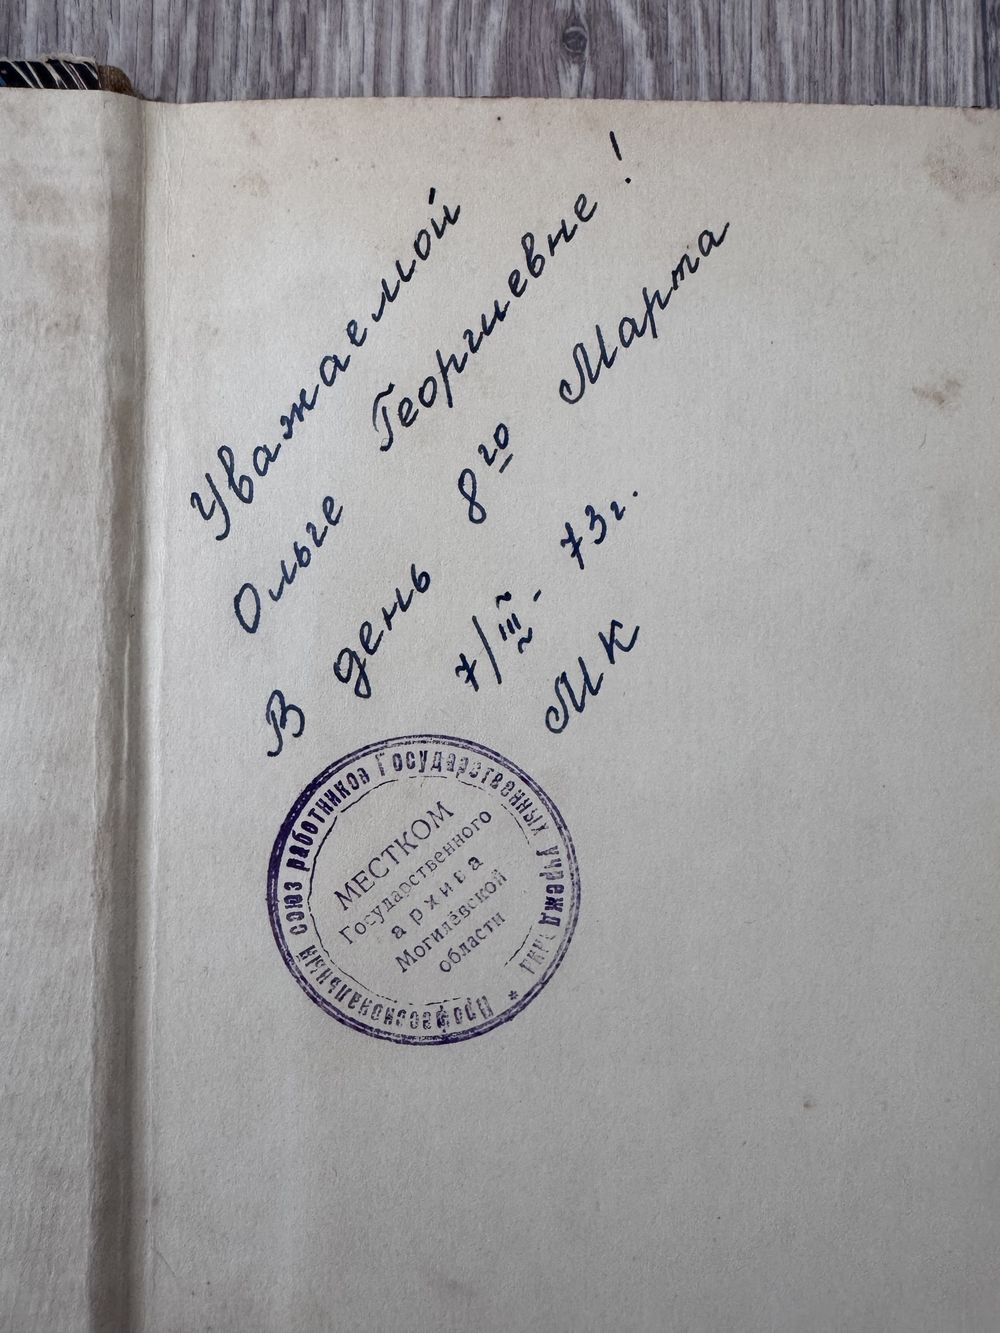 Уважаемой
Ольге Георгиевне!
В день 8го Марта
7/III - 73г.
МК
Профессиональный союз работников Государственных учрежд
МЕСТКОМ
Государственного
архива
Могилёвской
области